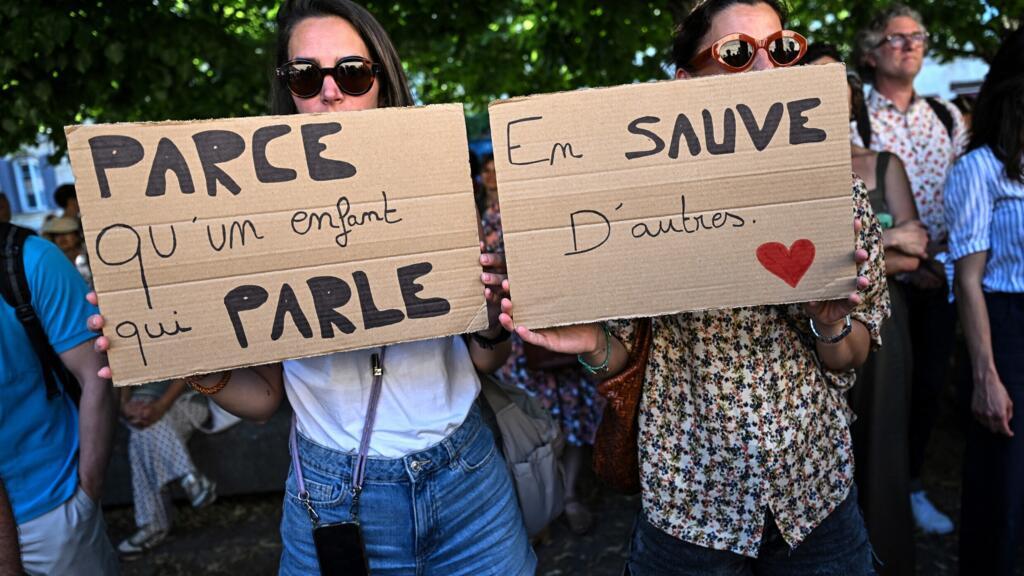 PARCE
QU'UN enfant
qui PARLE
En SAUVE
D'autres.